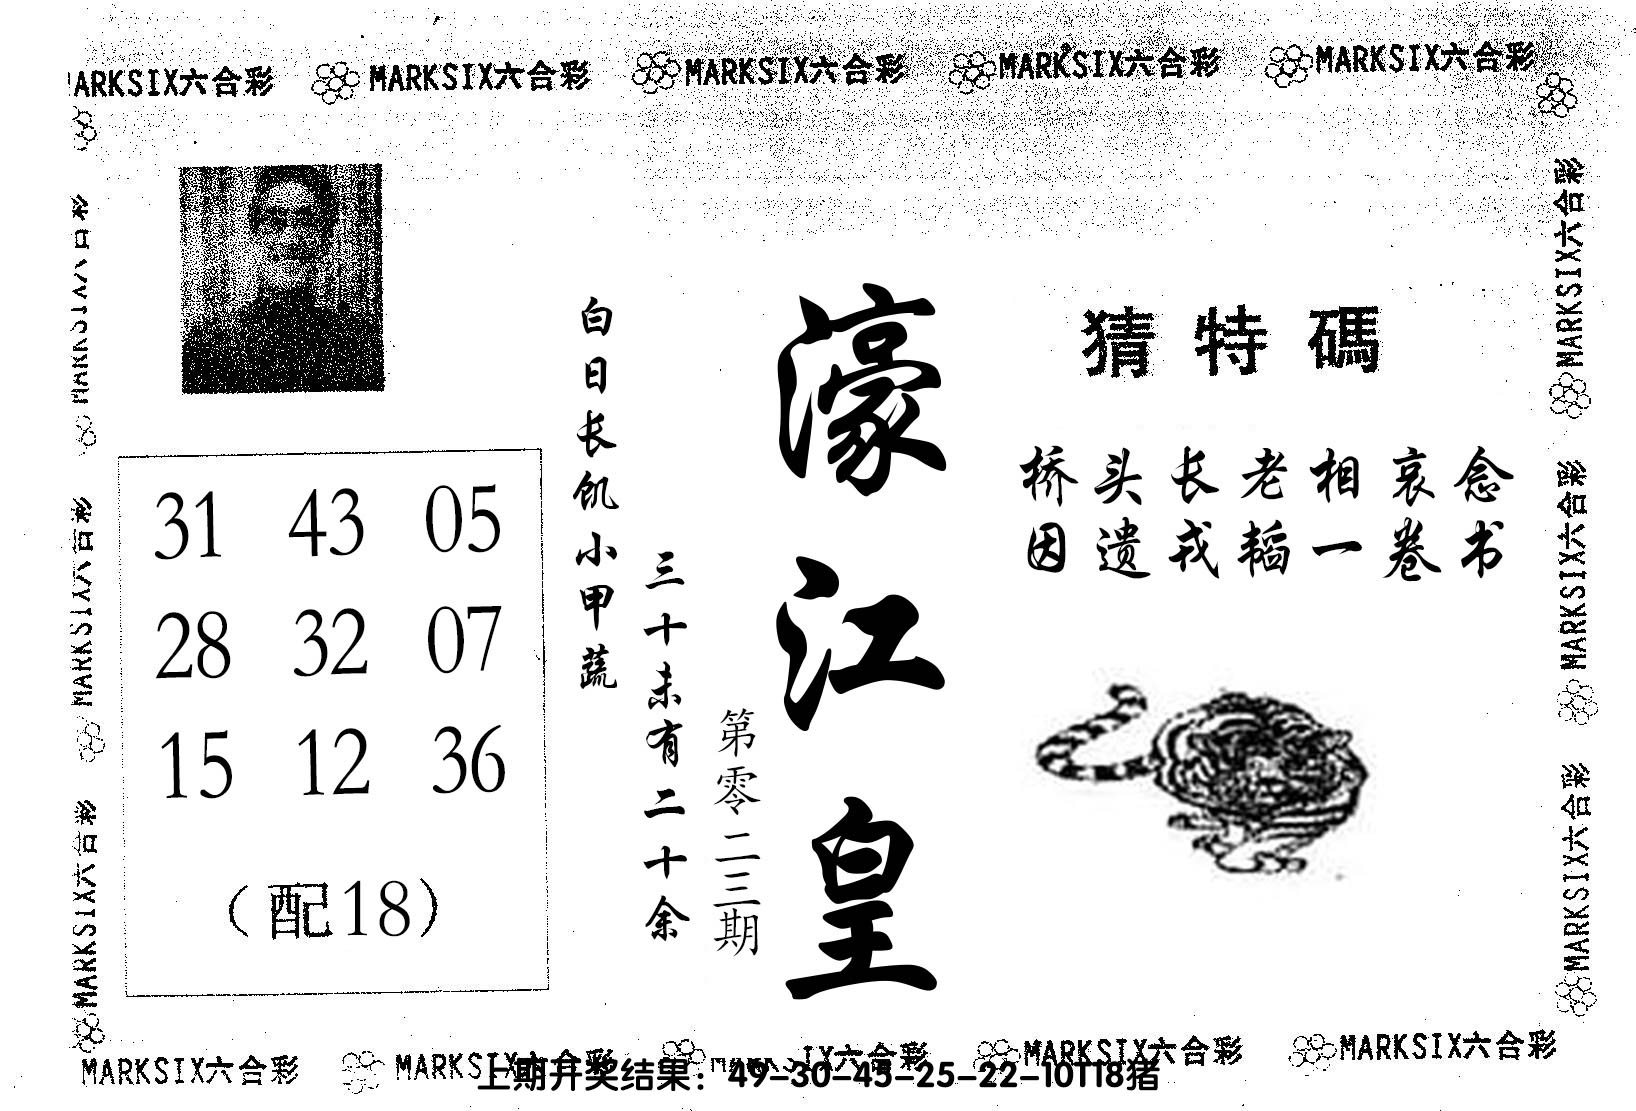 MARKSIX六合彩 MARKSIX六合彩 MARKSIX六合彩 MARKSIX六合彩 MARKSIX六合彩
MARKSIX六合彩
MARKSIX六合彩
MARKSIX六合彩
MARKSIX六合彩
MARKSIX六合彩
MARKSIX六合彩
猜特碼
桥头长老相哀念
因遗戎韬一卷书
濠江皇
第零二三期
三十未有二十余
白日长饥小甲蔬
31 43 05
28 32 07
15 12 36
（配18）
MARKSIX六合彩 MARKSIX六合彩 MARKSIX六合彩 MARKSIX六合彩 MARKSIX六合彩
上期开奖结果：49-30-45-25-22-10T18猪